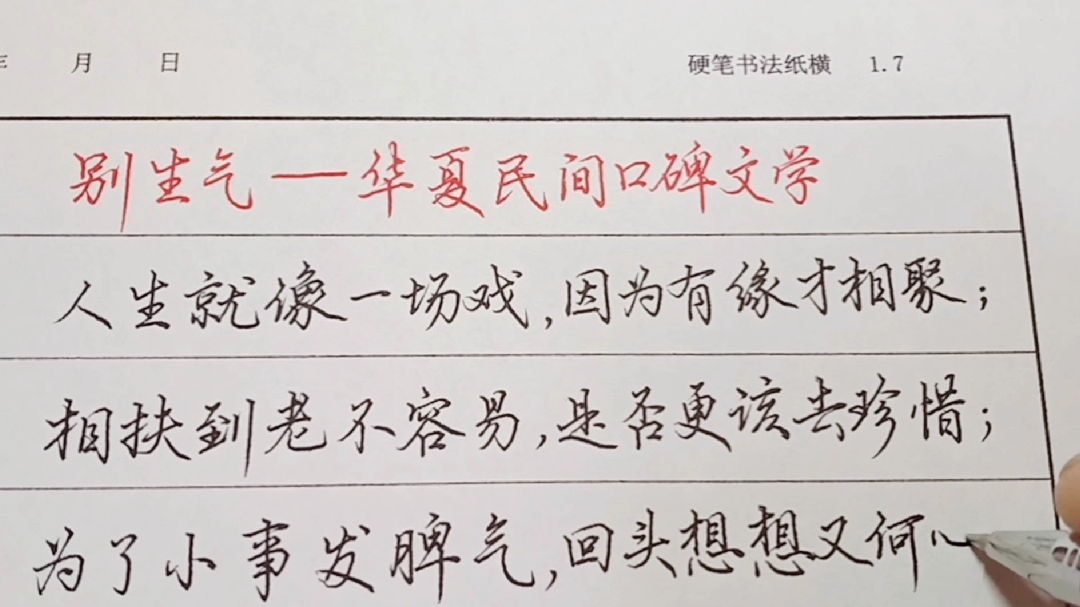 月 日 硬笔书法纸横 1.7
别生气——华夏民间口碑文学
人生就像一场戏,因为有缘才相聚;
相扶到老不容易,是否更该去珍惜;
为了小事发脾气,回头想想又何